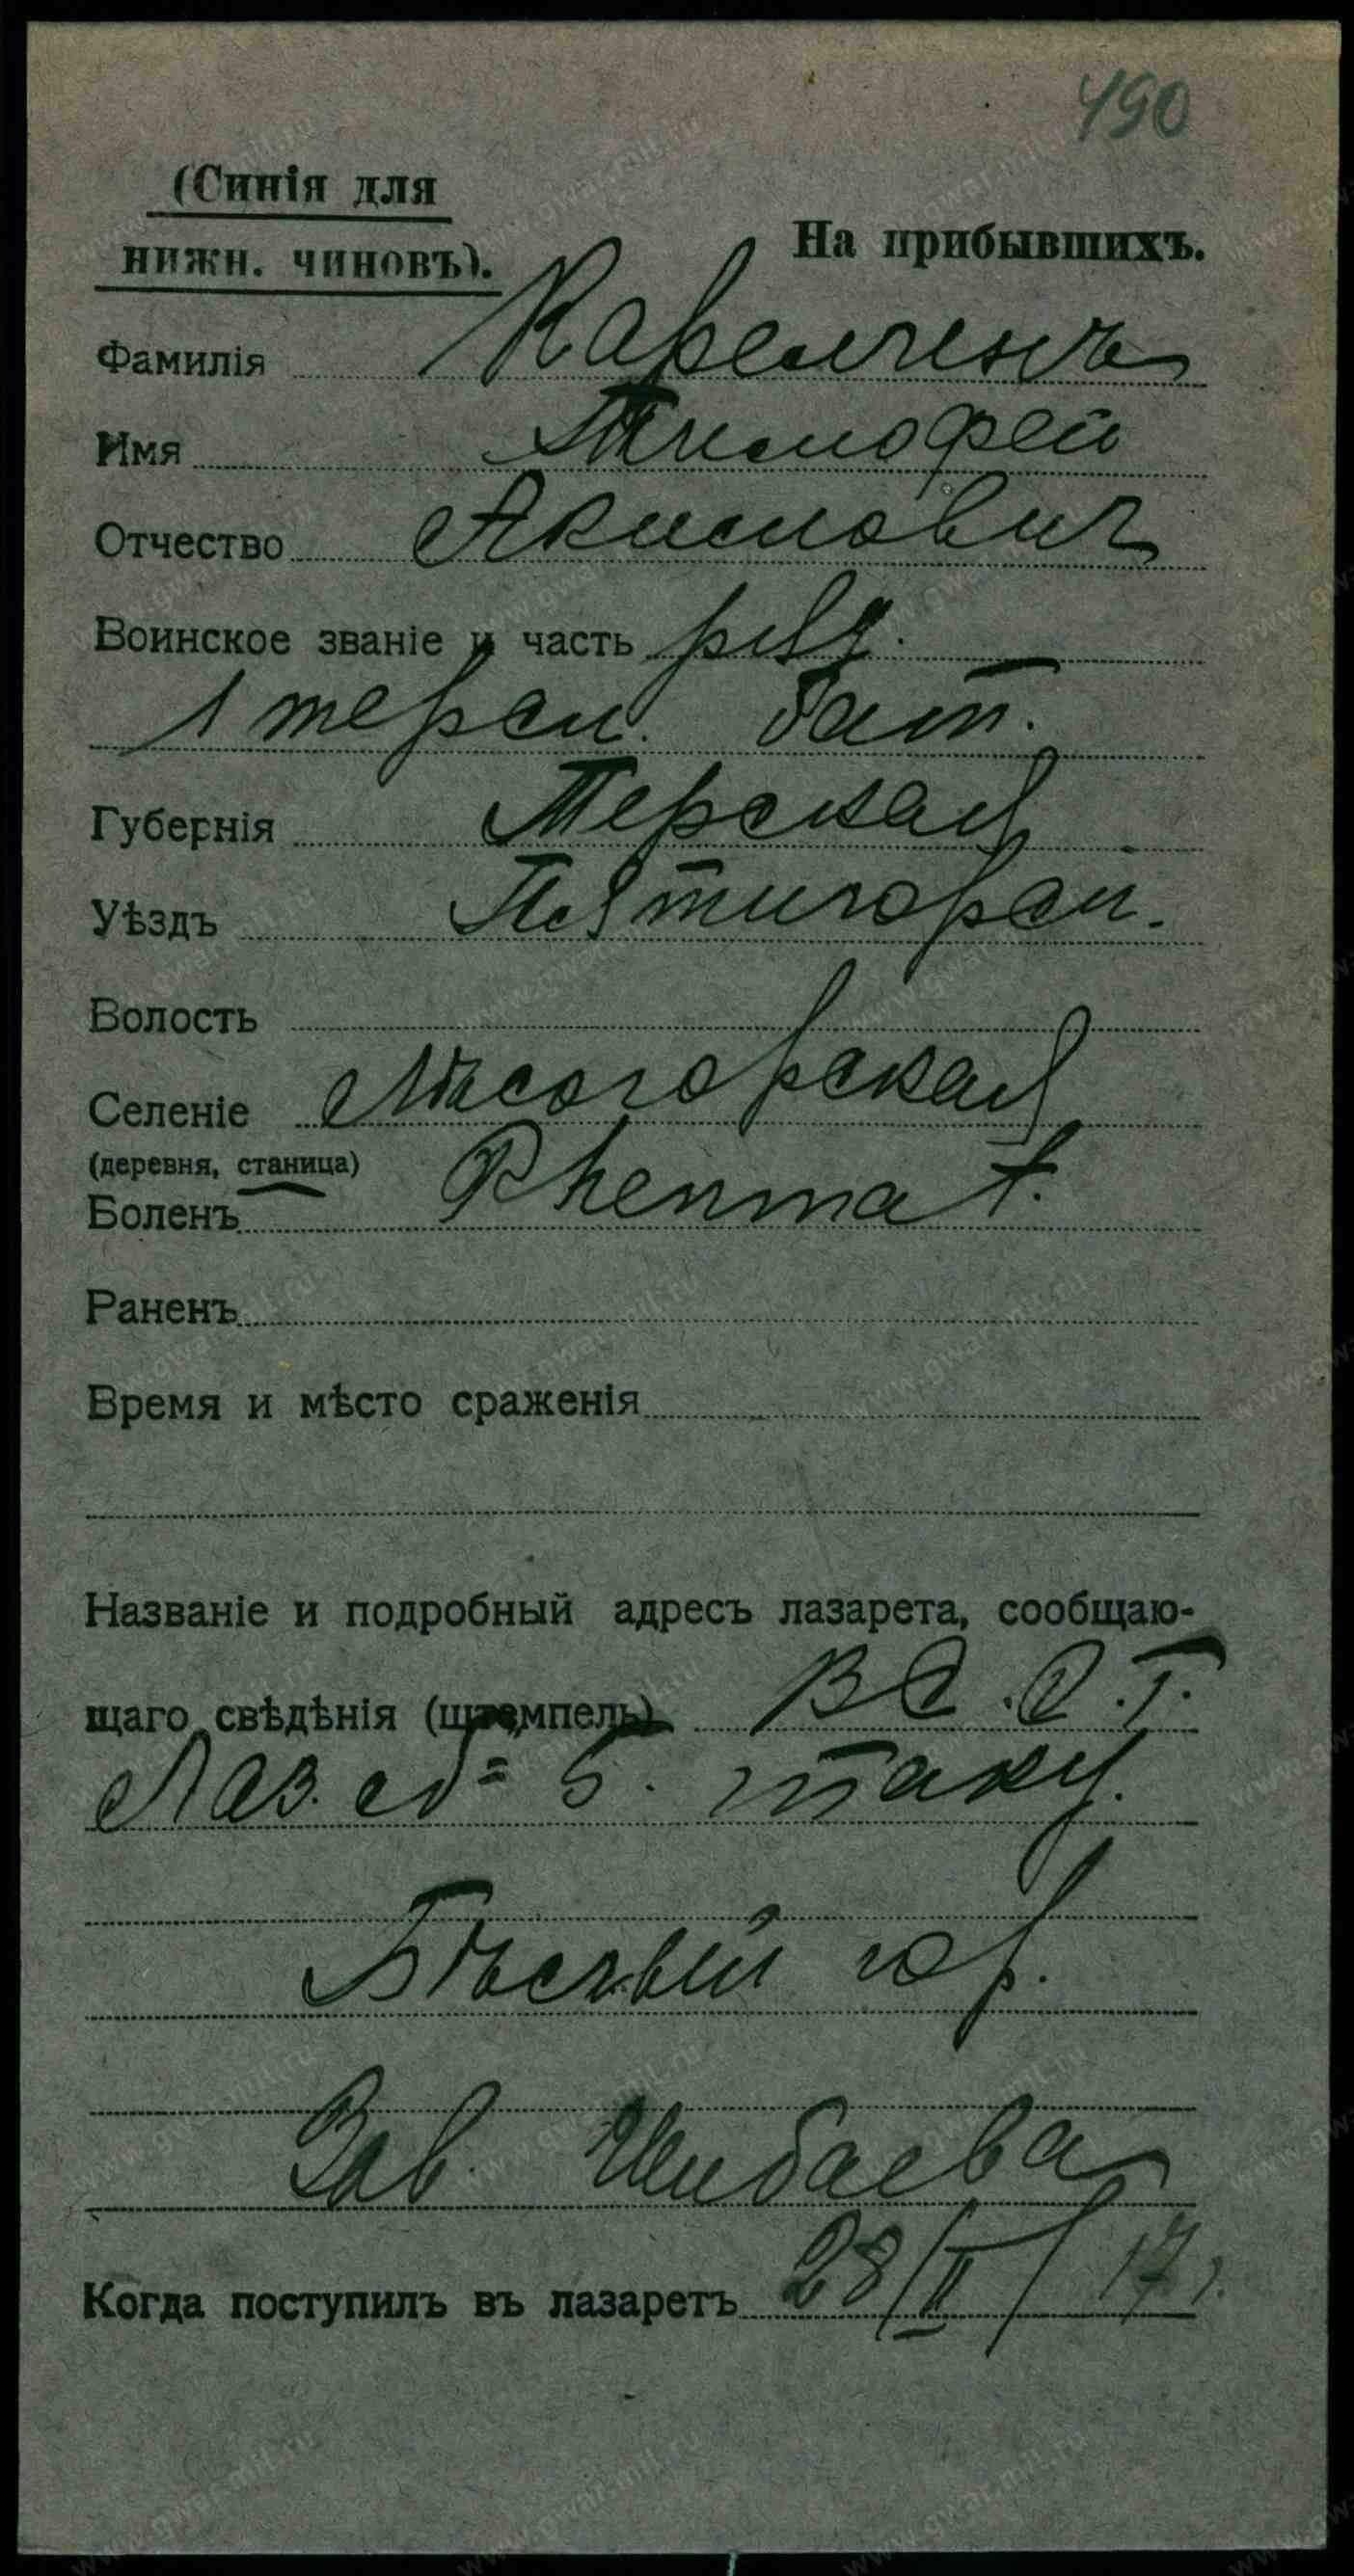 490
(Синія для
нижн. чиновъ).
На прибывшихъ.
Фамилія
Имя Тимофей
Отчество Акимович
Воинское званіе и часть ряд.
1 терск. бат.
Губернія Терская
Уѣздъ Пятигорск.
Волость
Селеніе Лысогорская
(деревня, станица)
Боленъ Rheumat.
Раненъ
Время и мѣсто сраженія
Названіе и подробный адресъ лазарета, сообщаю-
щаго свѣдѣнія (штемпель) В С. О. Г.
Лаз. № 5.
гор.
Зав. Шибаева
Когда поступилъ въ лазаретъ 28/II/17 г.